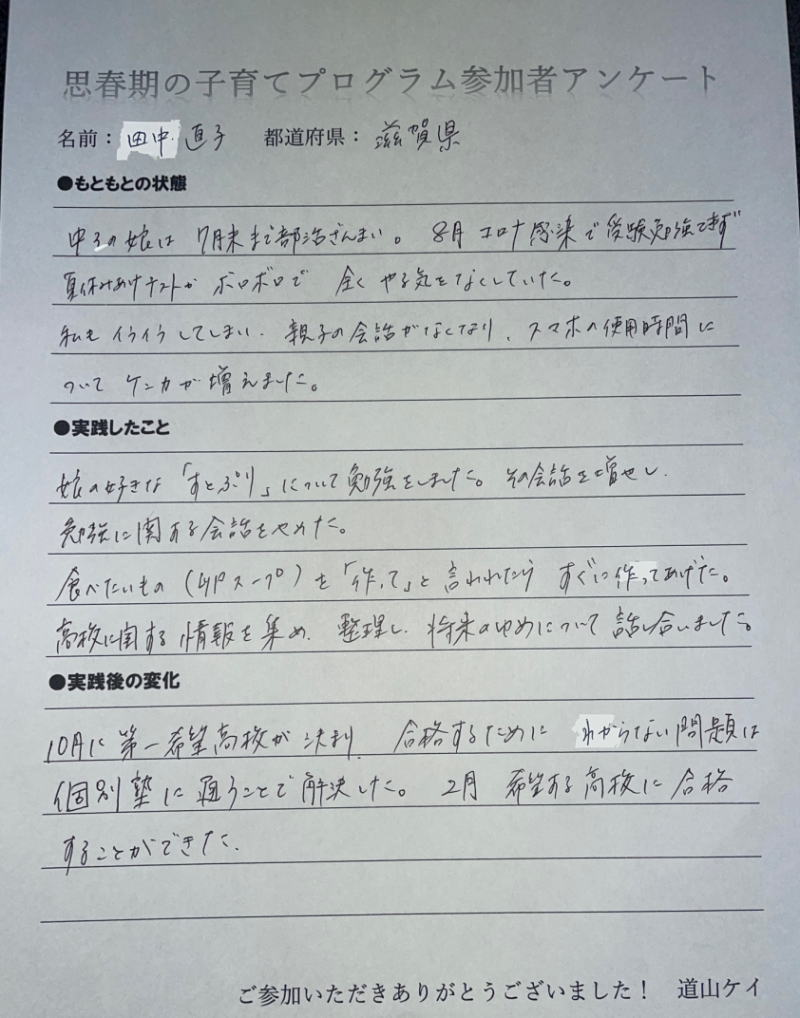 思春期の子育てプログラム参加者アンケート
名前： 田中 直子 都道府県： 滋賀県
●もともとの状態
中3の娘は 7月末まで部活ざんまい。 8月 コロナ感染で受験勉強できず
夏休みあけテストが ボロボロで 全くやる気をなくしていた。
私もイライラしてしまい、親子の会話がなくなり、スマホの使用時間に
ついて ケンカが増えました。
●実践したこと
娘の好きな「すとぷり」について勉強をしました。その会話を増やし、
勉強に関する会話をやめた。
食べたいもの（スープ）を「作って」と言われたら すぐに作ってあげた。
高校に関する情報を集め、整理し、将来のゆめについて話し合いました。
●実践後の変化
10月に第一希望高校が決まり、合格するために わからない問題は
個別塾に通うことで解決した。2月 希望する高校に合格
することができた。
ご参加いただきありがとうございました！ 道山ケイ